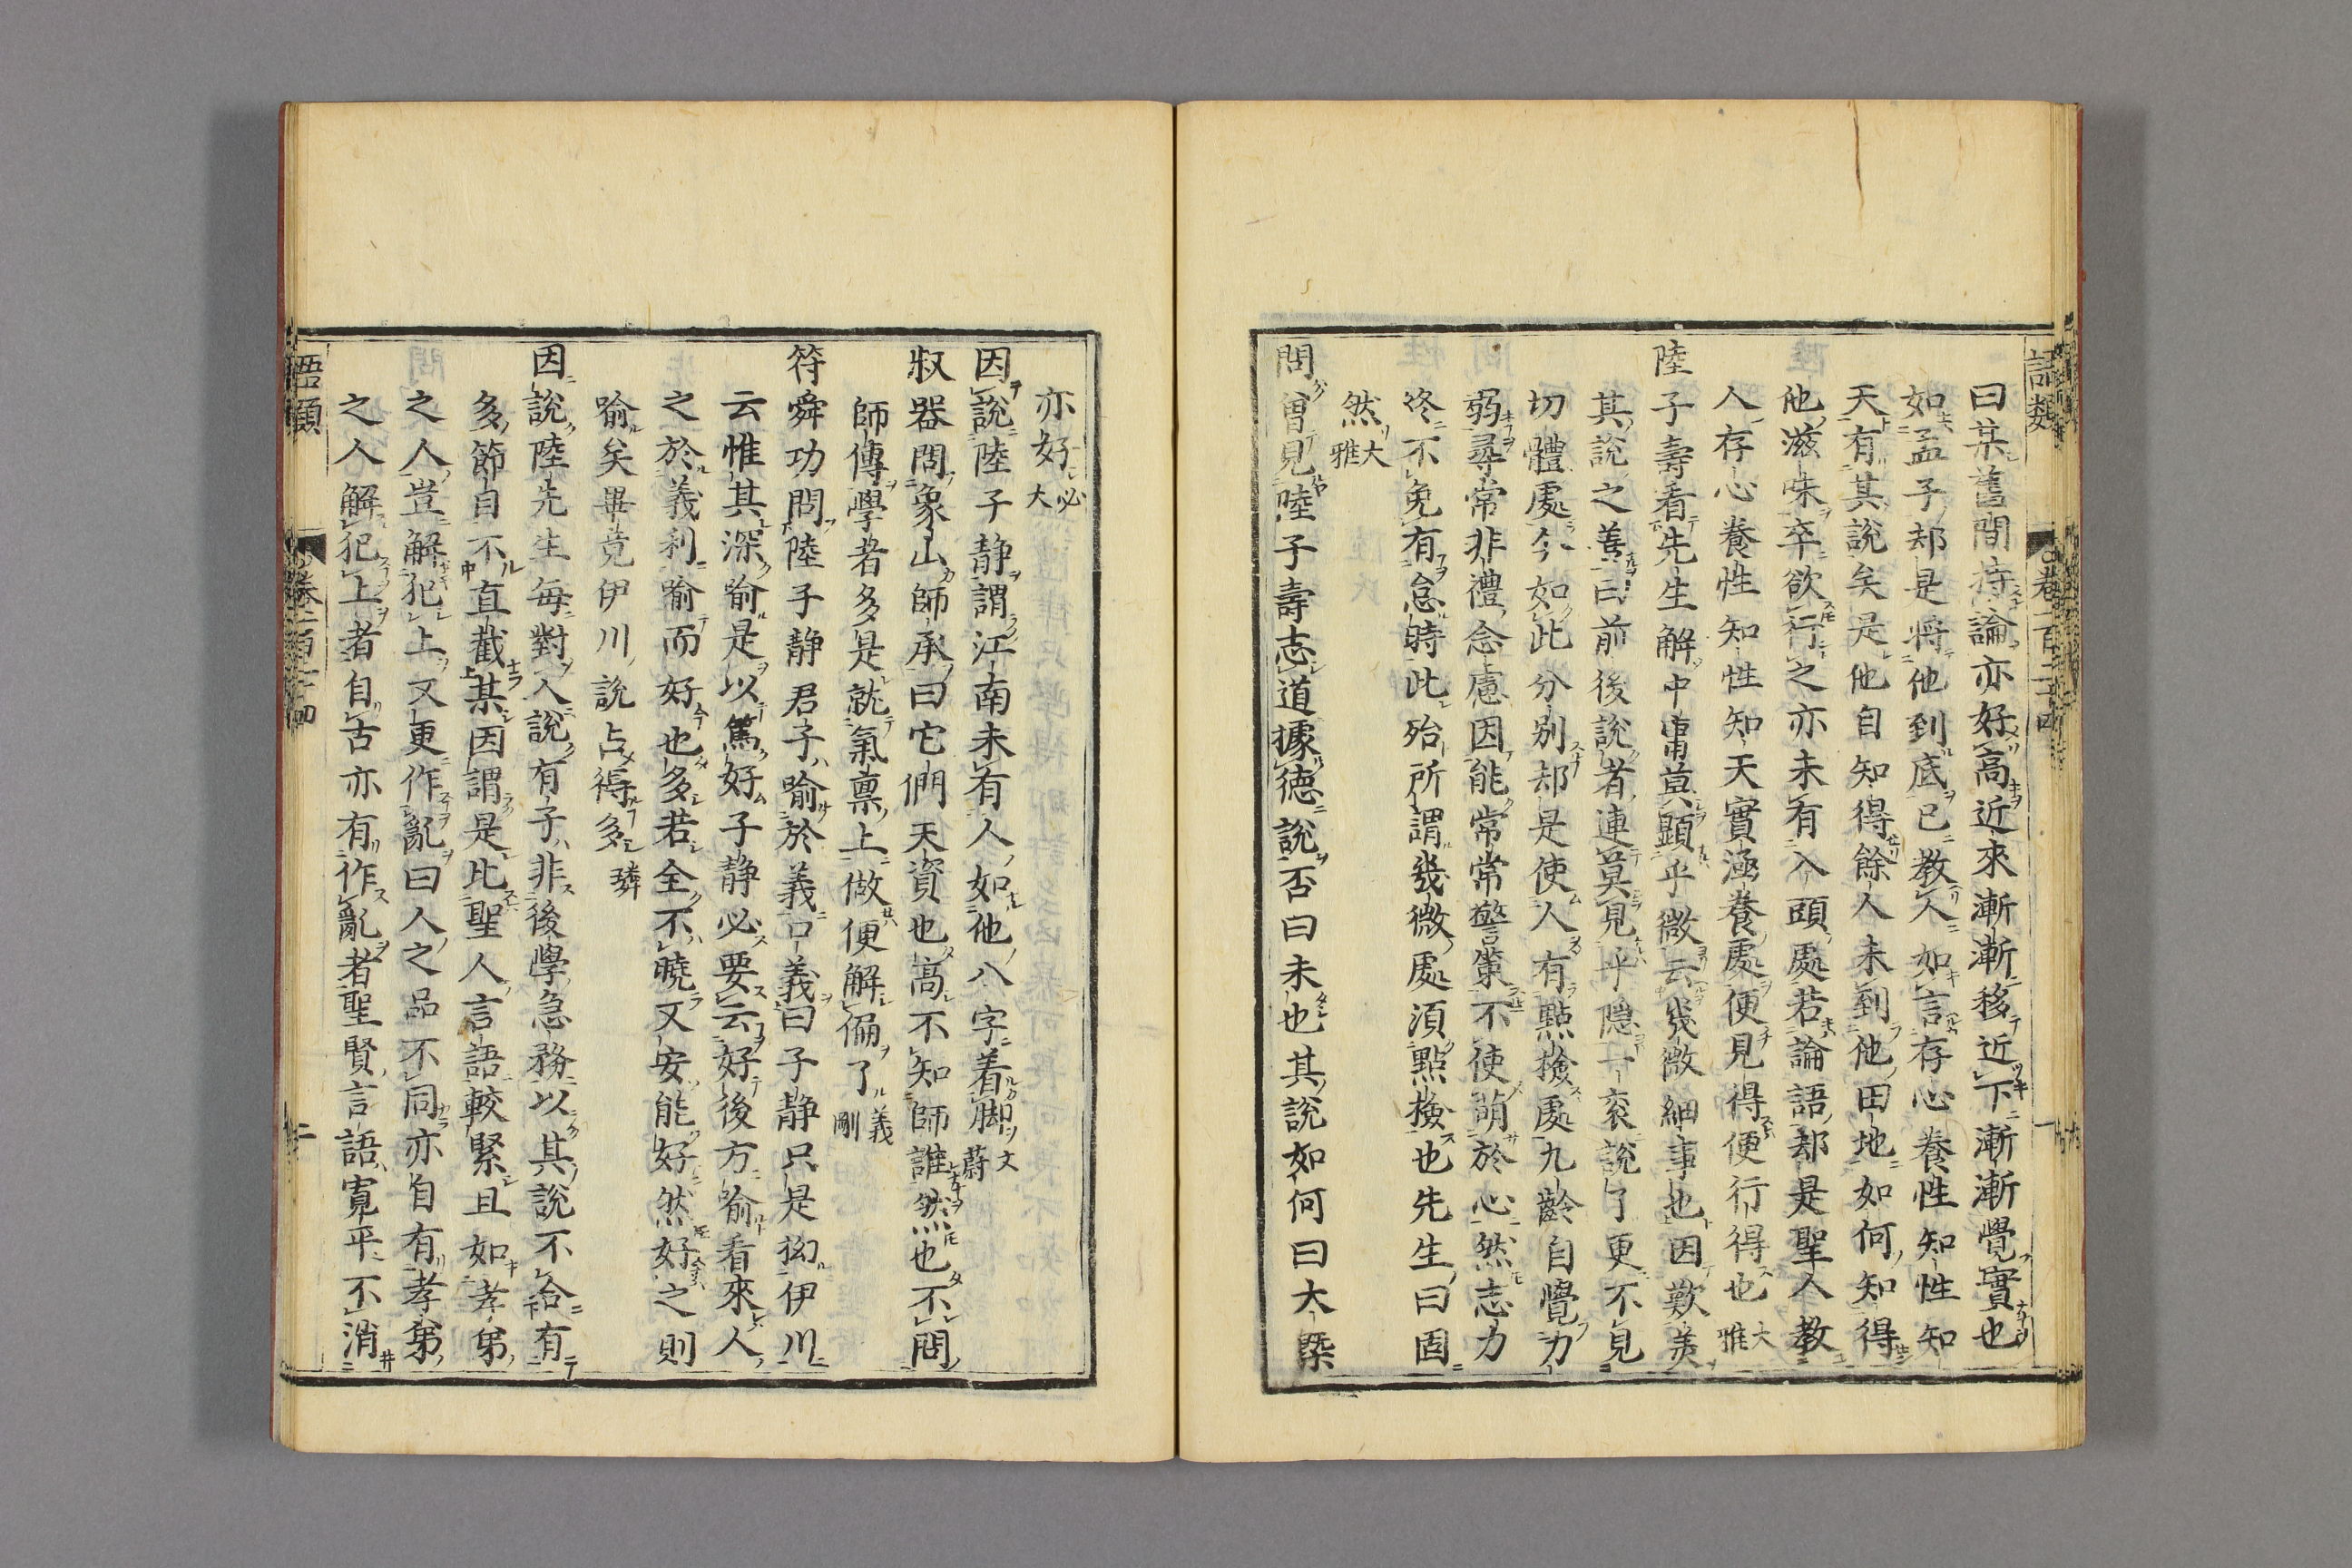 語類
卷一百二十四
一
曰某舊間持論亦好高近來漸漸移近下漸漸覺實也
如孟子却是將他到底已教人如言存心養性知性知
天有其說矣是他自知得餘人未到他田地如何知得
他滋味卒欲行之亦未有入頭處若論語却是聖人教
人存心養性知性知天實涵養處便見得便行得也大雅
陸子壽看先生解中庸莫顯乎微云幾微細事也因歎美
其說之善曰前後說者連莫見乎隱一衮說了更不見
切體處今如此分別却是使人有點撿處九齡自覺力
弱尋常非禮念慮因能常常警策不使萌於心然志力
終不免有怠時此殆所謂幾微處須點撿也先生曰固
然大雅
問曾見陸子壽志道據德說否曰未也其說如何曰大槩
亦好必大
因說陸子静謂江南未有人如他八字着脚文蔚
叔器問象山師承曰它們天資也高不知師誰然也不問
師傳學者多是就氣禀上做便解偏了義剛
符舜功問陸子静君子喻於義口義曰子静只是拗伊川
云惟其深喻是以篤好子静必要云好後方喻看來人
之於義利喻而好也多若全不曉又安能好然好之則
喻矣畢竟伊川說占得多璘
因說陸先生每對人說有子非後學急務以其說不合有
多節自不直截某因謂是比聖人言語較緊且如孝弟
之人豈解犯上又更作亂曰人之品不同亦自有孝弟
之人解犯上者自古亦有作亂者聖賢言語寬平不消
語類
卷一百二十四
二